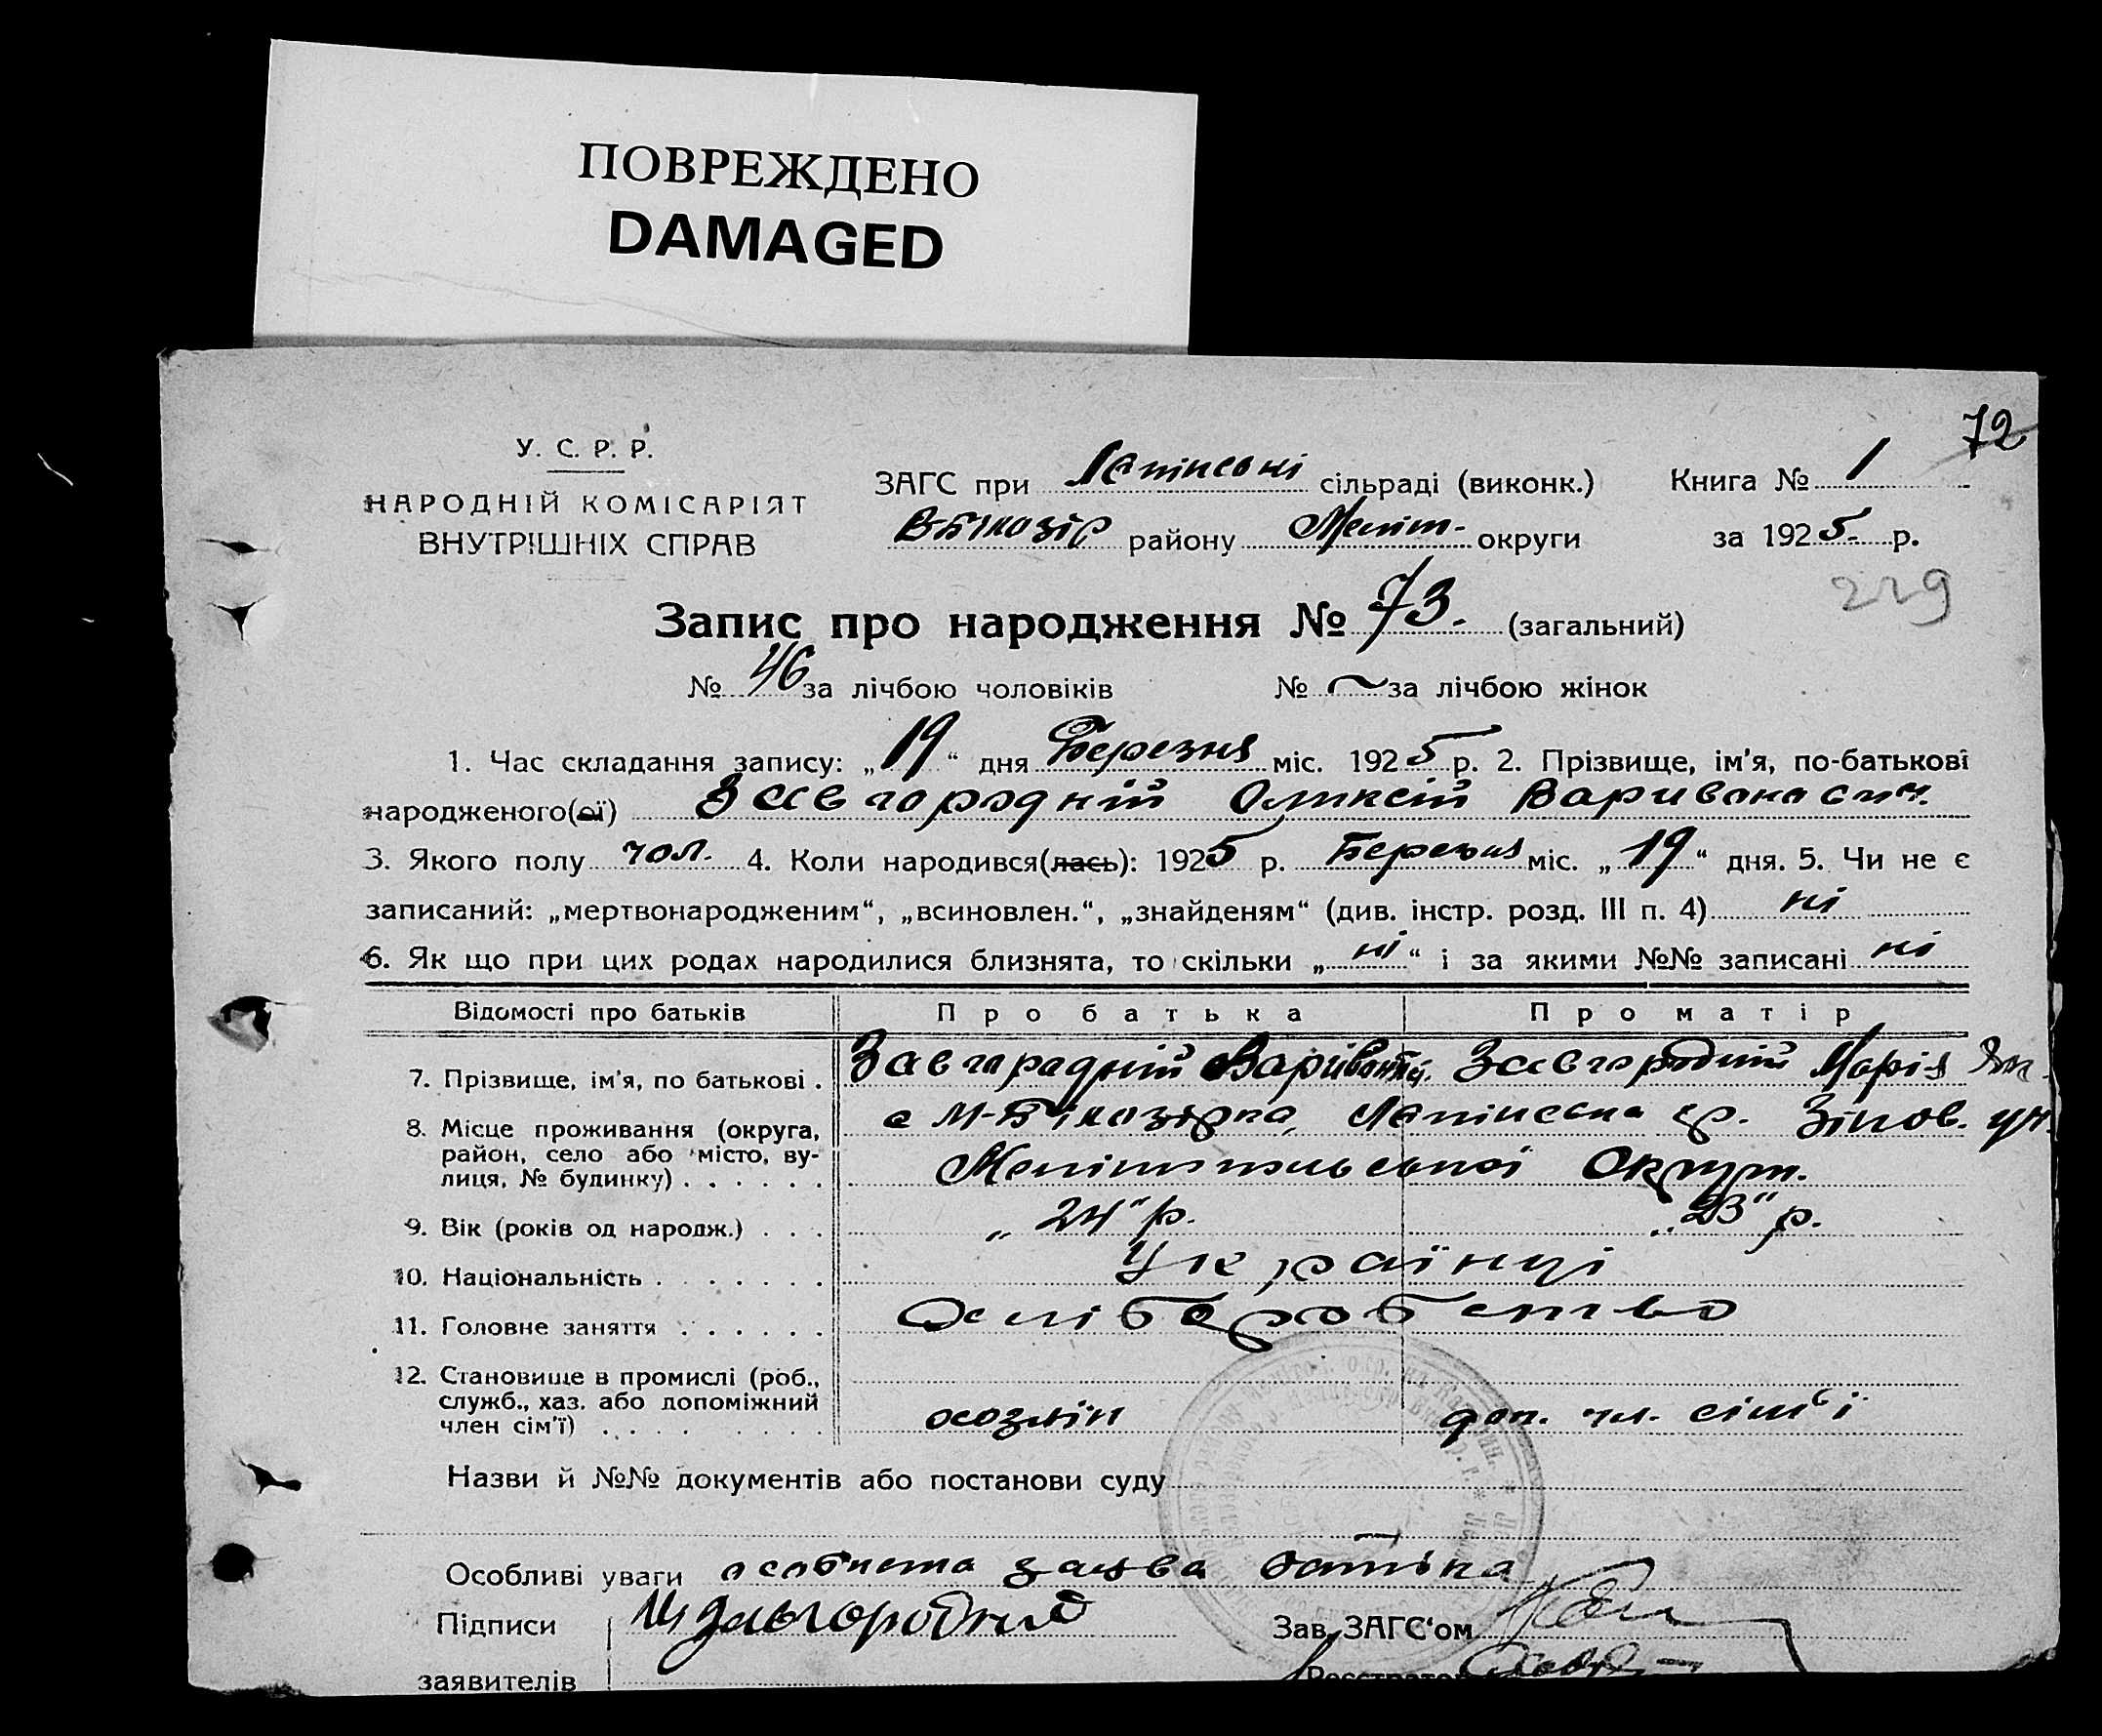 ПОВРЕЖДЕНО
DAMAGED
72
У. С. Р. Р.
НАРОДНІЙ КОМІСАРІЯТ
ВНУТРІШНІХ СПРАВ
ЗАГС при сільраді (виконк.) Книга № 1
В-Білозір району Меліт- округи за 1925. р.
229
Запис про народження № 73. (загальний)
№ 46 за лічбою чоловіків № ~ за лічбою жінок
1. Час складання запису: „19“ дня Березня міс. 1925 р. 2. Прізвище, ім'я, по-батькові
народженого(ої) Завгородній Олексій Варивонович.
3. Якого полу чол. 4. Коли народився(лась): 1925 р. Березня міс. „19“ дня. 5. Чи не є
записаний: „мертвонародженим“, „всиновлен.“, „знайденям“ (див. інстр. розд. III п. 4) ні
6. Як що при цих родах народилися близнята, то скільки „ні“ і за якими №№ записані ні
Відомості про батьків Про батька Про матір
7. Прізвище, ім'я, по батькові . Завгородній Завгородній Марія
8. Місце проживання (округа, с М-Білозірка,
район, село або місто, ву-
лиця, № будинку) . . . . . . Мелітопольської Округи.
9. Вік (років од народж.) . . . „24“ р. „23“ р.
10. Національність . . . . . . . Українці
11. Головне заняття . . . . . . Хліборобство
12. Становище в промислі (роб.,
служб., хаз. або допоміжний
член сім'ї) . . . . . . . . доп. чл. сім'ї
Назви й №№ документів або постанови суду
Особливі уваги особиста заява батька
Підписи Завгородний Зав. ЗАГС'ом
заявителів Реєстратор